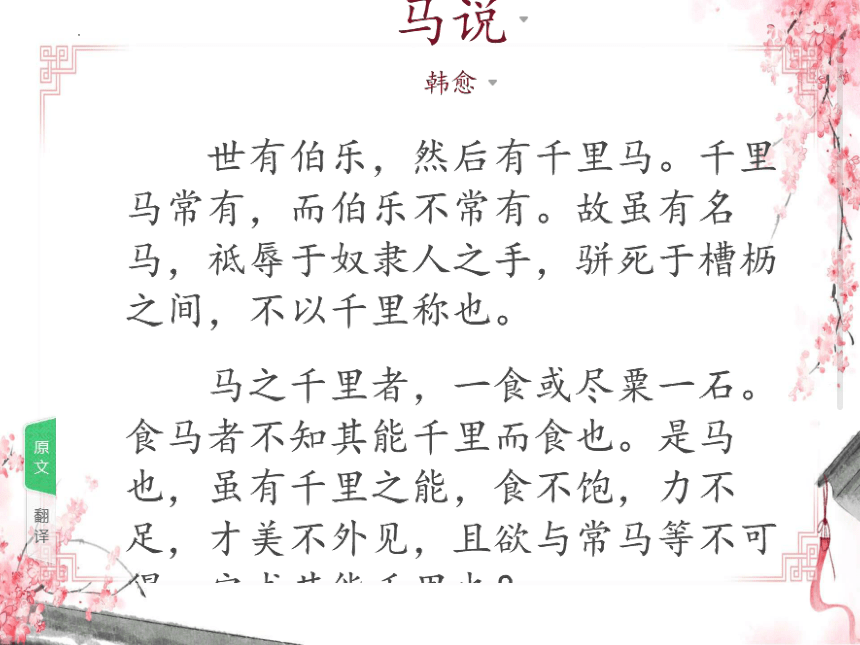 马说
韩愈
世有伯乐，然后有千里马。千里
马常有，而伯乐不常有。故虽有名
马，祗辱于奴隶人之手，骈死于槽枥
之间，不以千里称也。
马之千里者，一食或尽粟一石。
食马者不知其能千里而食也。是马
也，虽有千里之能，食不饱，力不
足，才美不外见，且欲与常马等不可
原文
翻译